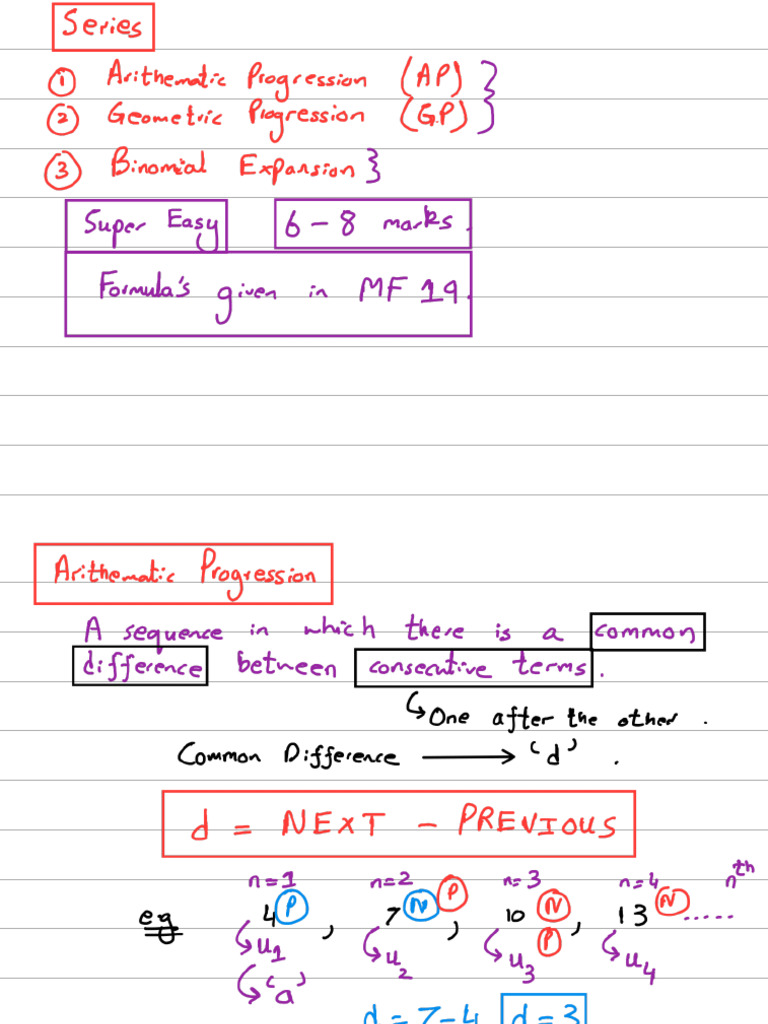 Series
① Arithematic Progression (AP) }
② Geometric Progression (G.P) }
③ Binomial Expansion }
Super Easy 6 – 8 marks.
Formula's given in MF 19.
Arithematic Progression
A sequence in which there is a common
difference between consecutive terms.
↳ One after the other.
Common Difference ⟶ 'd'.
d = NEXT – PREVIOUS
n=1 n=2 n=3 n=4 nth
eg 4 P, 7 N P, 10 N P, 13 N .....
↳ u1 ↳ u2 ↳ u3 ↳ u4
↳ 'a'
d = 7–4 d = 3